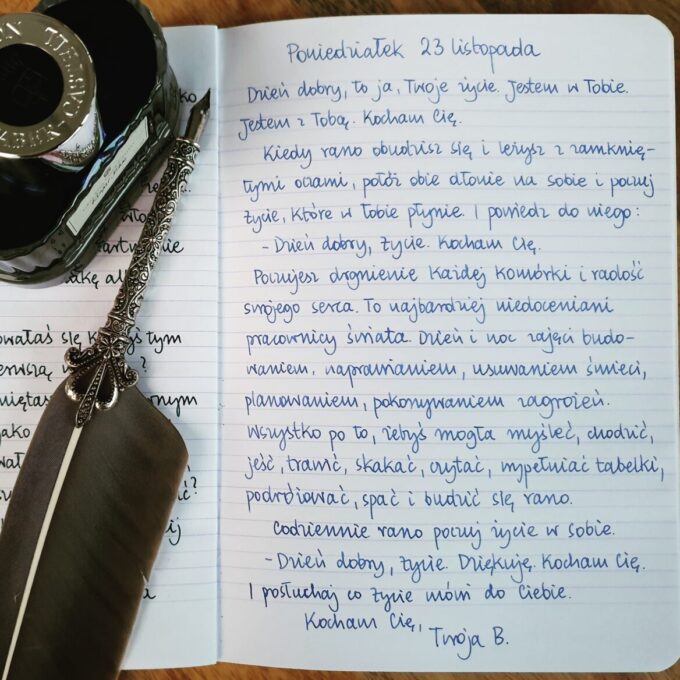 Poniedziałek 23 listopada
Dzień dobry, to ja, Twoje życie. Jestem w Tobie.
Jestem z Tobą. Kocham Cię.
Kiedy rano obudzisz się i leżysz z zamknię-
tymi oczami, połóż obie dłonie na sobie i poczuj
życie, które w Tobie płynie. I powiedz do niego:
- Dzień dobry, życie. Kocham Cię.
Poczujesz drgnienie każdej komórki i radość
swojego serca. To najbardziej niedoceniani
pracownicy świata. Dzień i noc zajęci budo-
waniem, naprawianiem, usuwaniem śmieci,
planowaniem, pokonywaniem zagrożeń.
Wszystko po to, żebyś mogła myśleć, chodzić,
jeść, trawić, skakać, czytać, wypełniać tabelki,
podróżować, spać i budzić się rano.
Codziennie rano poczuj życie w sobie.
- Dzień dobry, życie. Dziękuję, Kocham Cię.
I posłuchaj co życie mówi do Ciebie.
Kocham Cię,
Twoja B.